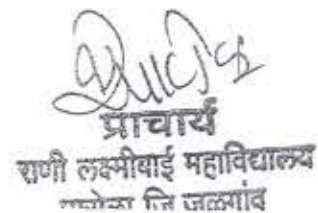 प्राचार्य
राणी लक्ष्मीबाई महाविद्यालय
पारोळा जि जळगांव